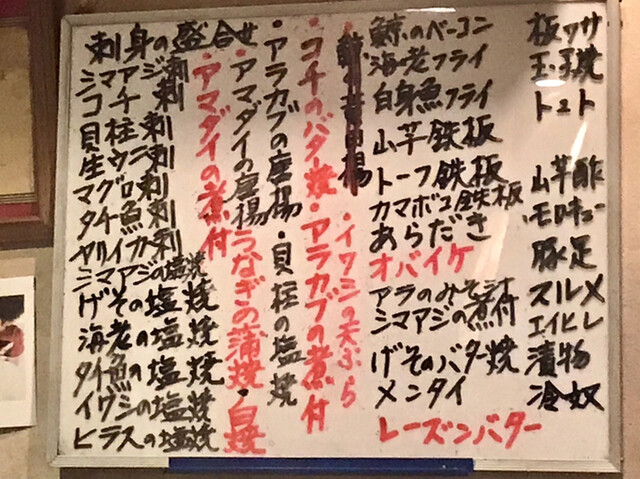 刺身の盛合せ
シマアジ刺
コチ刺
貝柱刺
生ウニ刺
マグロ刺
タチ魚刺
ヤリイカ刺
シマアジの塩焼
げその塩焼
海老の塩焼
タチ魚の塩焼
イワシの塩焼
ヒラスの塩焼
・アマダイの煮付
・アマダイの唐揚
うなぎの蒲焼・白焼
・アラカブの唐揚・貝柱の塩焼
・コチのバター焼・アラカブの煮付
・イワシの天ぷら
鯨のベーコン
海老フライ
白身魚フライ
山芋鉄板
トーフ鉄板
カマボコ鉄板
あらだき
オバイケ
アラのみそ汁
シマアジの煮付
げそのバター焼
メンタイ
レーズンバター
板ワサ
玉子焼
トマト
山芋酢
モロキュー
豚足
スルメ
エイヒレ
漬物
冷奴